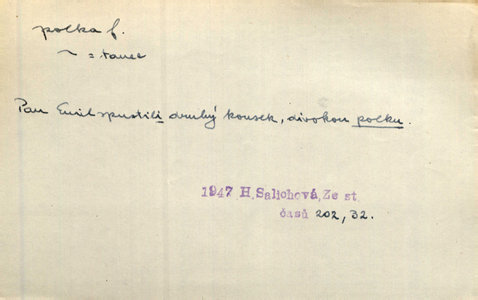 polka f.
~ = tanec
Pan Emil spustili druhý kousek, divokou polku.
1947 H.Salichová, Ze st.
časů 202, 32.